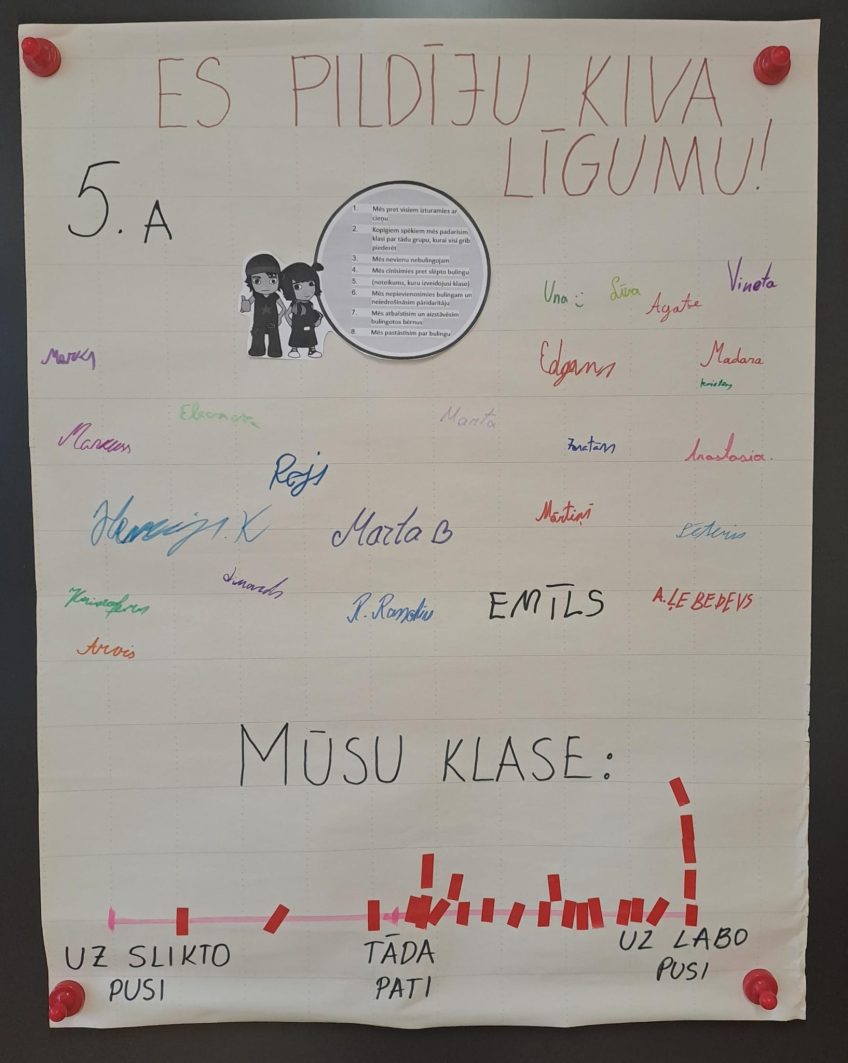 ES PILDĪJU KIVA
LĪGUMU!
5. A
1. Mēs pret visiem izturamies ar
cieņu
2. Kopīgiem spēkiem mēs padarīsim
klasi par tādu grupu, kurai visi grib
piederēt
3. Mēs nevienu nebulingojam
4. Mēs cīnīsimies pret slēpto bulingu
5. (noteikums, kuru izveidojusi klase)
6. Mēs nepievienosimies bulingam un
neiedrošināsim pāridarītāju
7. Mēs atbalstīsim un aizstāvēsim
bulingotos bērnus
8. Mēs pastāstīsim par bulingu
Una
Līva
Agate
Vineta
Marks
Edgars
Madara
Eleonora
Marita
Markuss
Anastasia.
Rojs
K
Marta B
Mārtiņš
Pēteris
EMĪLS
A. ĻEBEDEVS
Arvis
MŪSU KLASE:
UZ SLIKTO
PUSI
TĀDA
PATI
UZ LABO
PUSI